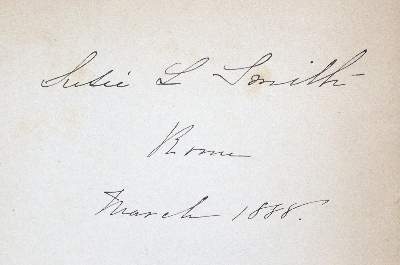 Susie L Smith
Rome
March 1888.